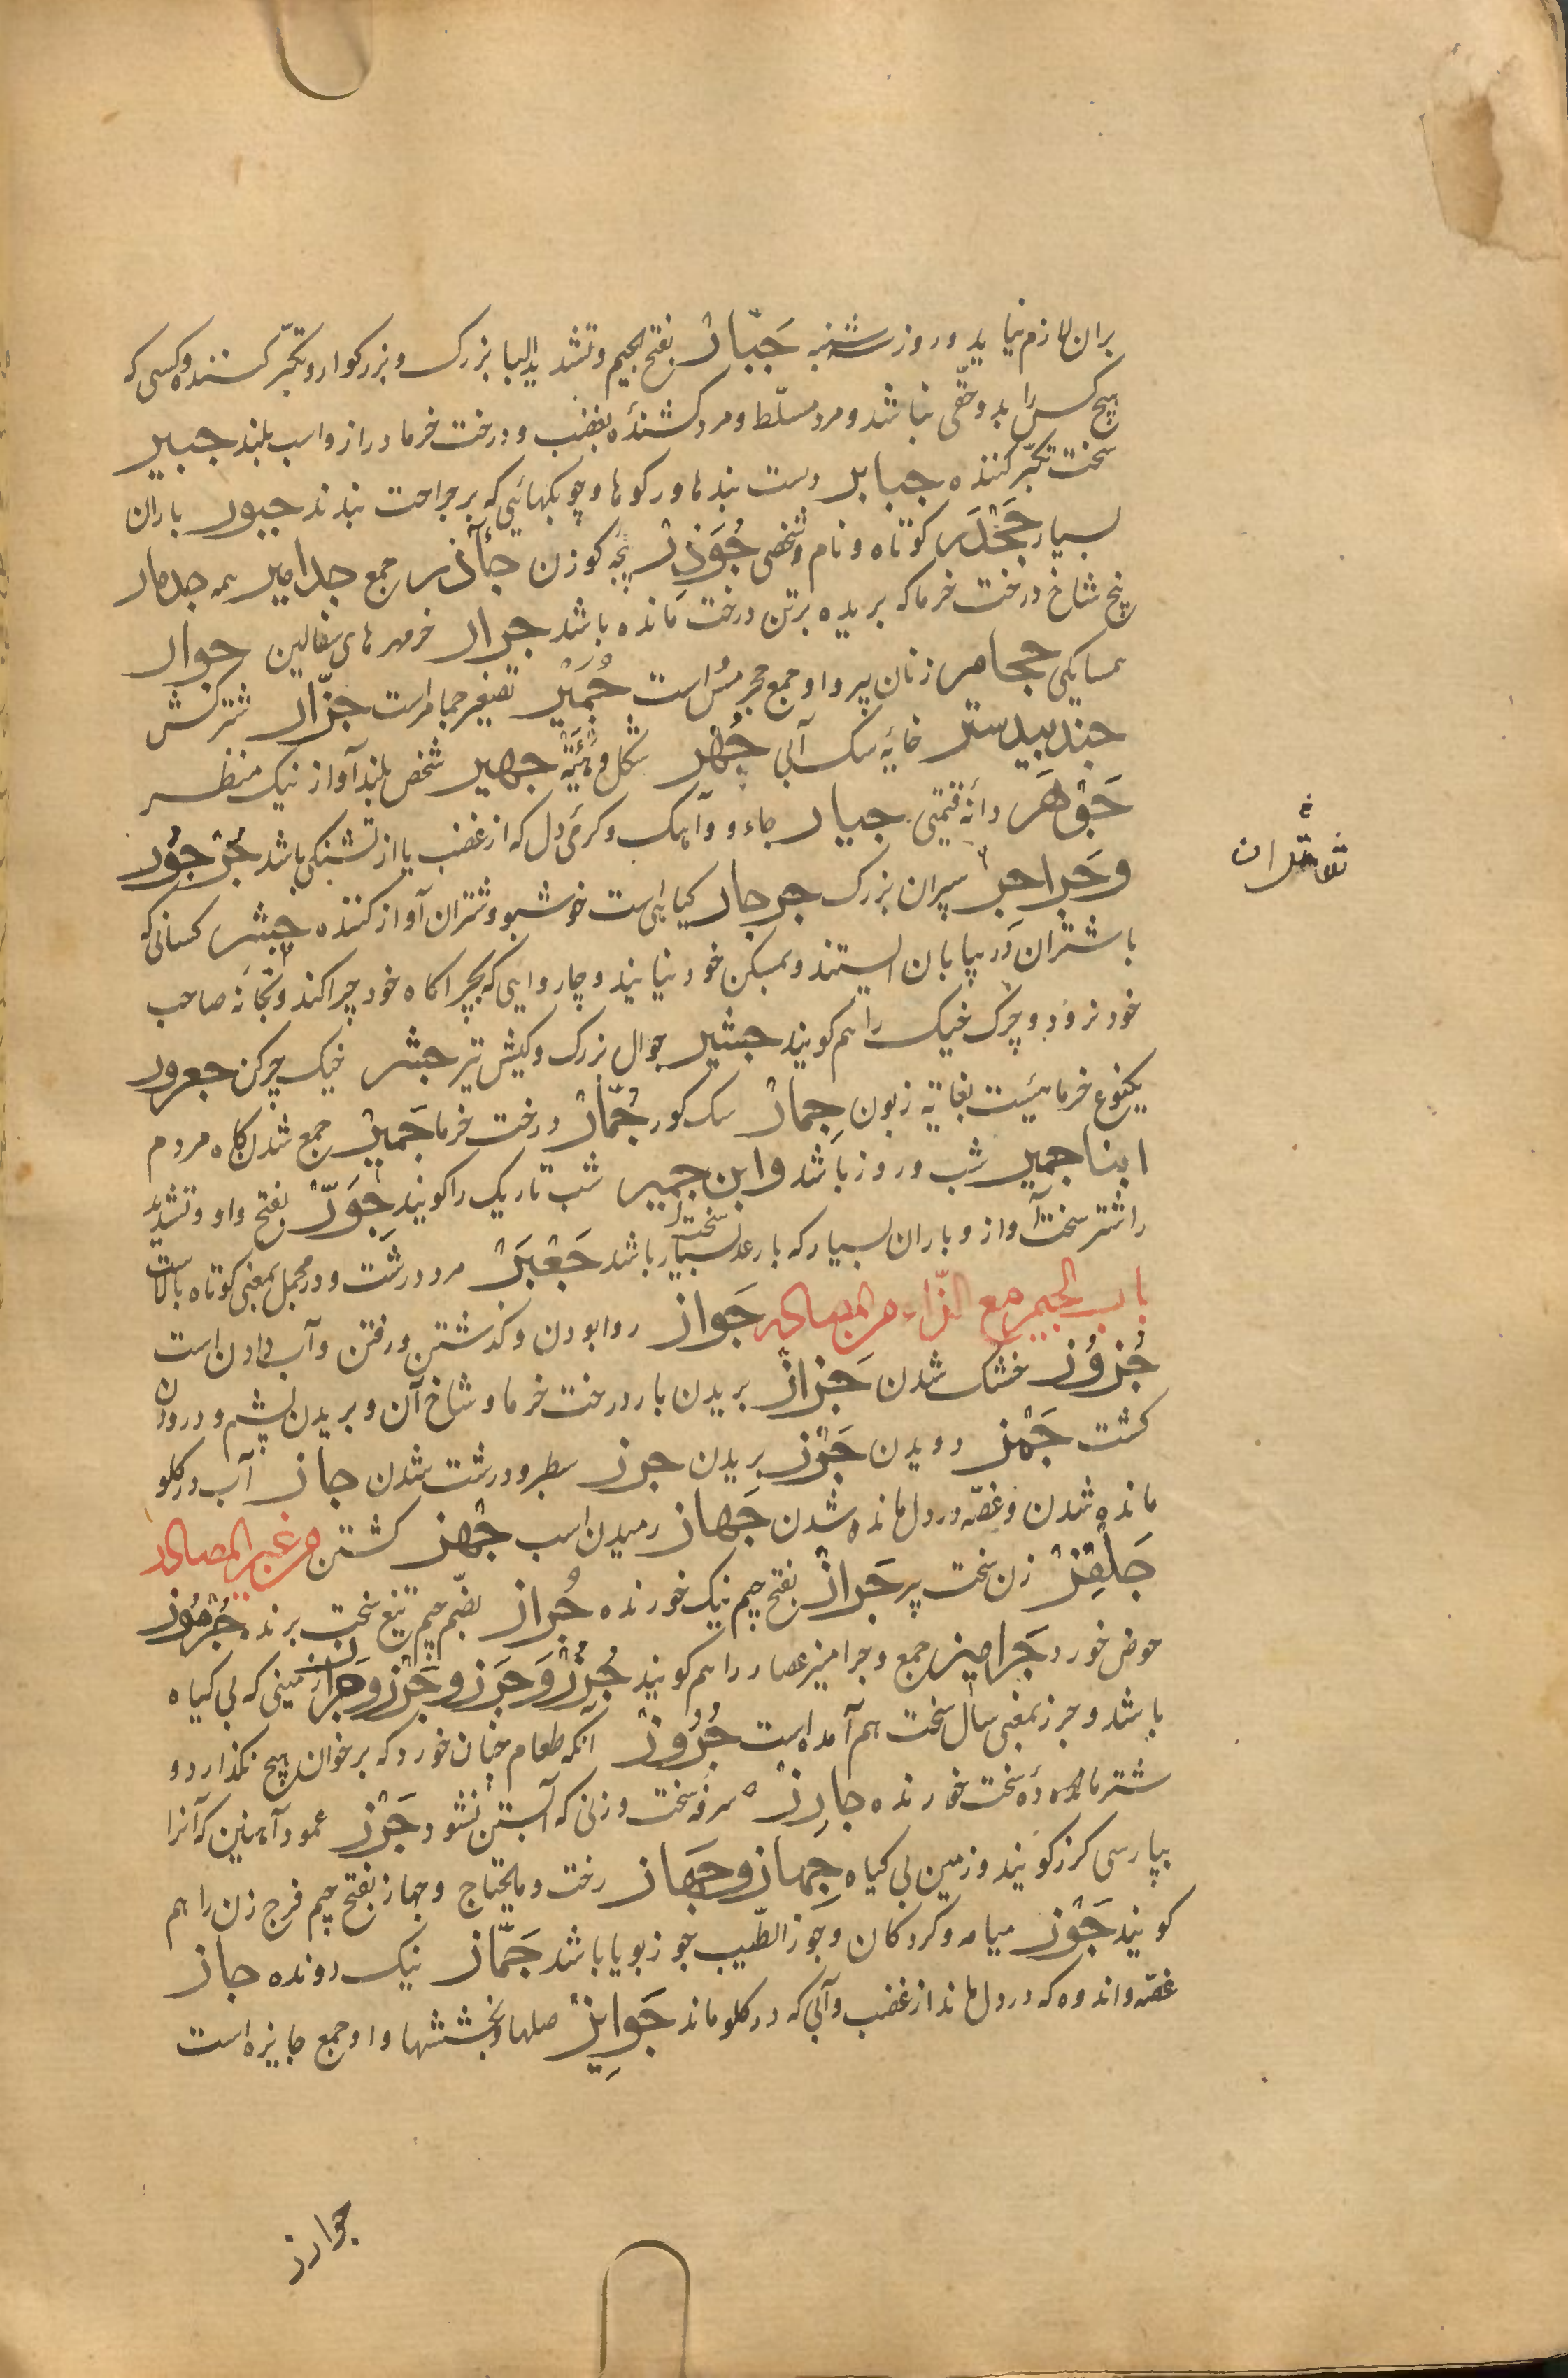 بران لازم نیاید و روز سه‌شنبه جَبّارْ بفتح الجیم و تشدید البا بزرک و بزرکوار و تکبّر کننده و کسی که
هیچ کس را بدو حقّی نباشد و مرد مسلّط و مرد کشندهٔ بغضب و درخت خرما دراز و اسب بلند جبیر
سخت تکبّر کننده جبابر دست بندها و رکوها و چوبکهائی که بر جراحت بندند جبور باران
بسیار جَحْدَر کوتاه و نام شخصی جُوَذِرْ بچهٔ کوزن جأذر جمع جدامیر مه جدمار
بیخ شاخ درخت خرما که بریده بر تن درخت مانده باشد جرار خرمهرهای سفالین جوار
همسایکی ججامر زنان پیر و او جمع حجرمش است جُمَیْر تصغیر جمامر است جزّار شترکش
جندبیدستر خایهٔ سک آبی جُهْر شکل و هَیْئَة جهیر شخص بلند آواز نیک منظر
جَوْهَر دانهٔ قیمتی جیار جاء و وآهک و کرمی دل که از غضب یا از تشنکی باشد جُرْجُور
وجَراجِر سپران بزرک جرجار کیاهی است خوشبو و شتران آواز کننده جشر کسانی که
با شتران در بیابان ایستند و بمسکن خود نیایند و چاروایی که بچراکاه خود چرا کند و بخانهٔ صاحب
خود نرود و چرک خیک را هم کویند جشیر جوال بزرک و کیش تیر جشر خیک چرکن جعرور
یکنوع خرمائیست بغایة زبون جِمارْ سک کور جُمّارْ درخت خرما جَمیْر جمع شدن کاه مردم
ابنا جمیر شب و روز باشد وابن جمیر شب تاریک را کویند جِوَرّ بفتح واو و تشدید
را شتر سخت آواز و باران بسیار که با رعد سخت بسیار باشد جَعْبَرْ مرد درشت و در مجمل بمعنی کوتاه بالاست
باب الجیم مع الزّاء من المصادر جَواز روا بودن و کذشتن و رفتن و آب دادن است
جُزوُز خشک شدن جَزازْ بریدن بار درخت خرما و شاخ آن و بریدن پشم و درودن
کشت جَمْز دویدن جَرْز بریدن جرز سطبر و درشت شدن جاز آب در کلو
مانده شدن و غصّه در دل مانده شدن جَهاز رمیدن اسب جْهز کشتن من غیر المصادر
جَلْفِزْ زن سخت پیر جَرازْ بفتح جیم نیک خورنده جُراز بضّم جیم تیغ سخت برنده جُرْمُوز
حوض خورد جَرامیز جمع و جرامیز عصار را هم کویند جُرُزْ وَجَرَز وجَرْز وجُرْز زمینی که بی کیاه
باشد و جرز بمعنی سال سخت هم آمده است جُرُوزْ آنکه طعام چنان خورد که بر خوان هیچ نکذارد و
شتر ماده سخت خورنده جارِزْ سرفه سخت و زنی که آبستن نشود جَرْز عمود آهنین که آنرا
بپارسی کرز کویند و زمین بی کیاه جِهاز وجَهاز رخت و مایحتاج و جهاز بفتح جیم فرج زن را هم
کویند جَوْز میانه و کردکان و جوز الطّیب جوز بویا باشد جَمّاز نیک دونده جاز
غصّه و اندوه که در دل ماند از غضب و آبی که در کلو ماند جَوایِزْ صلها و بخششها و او جمع جایزه است
جوارز